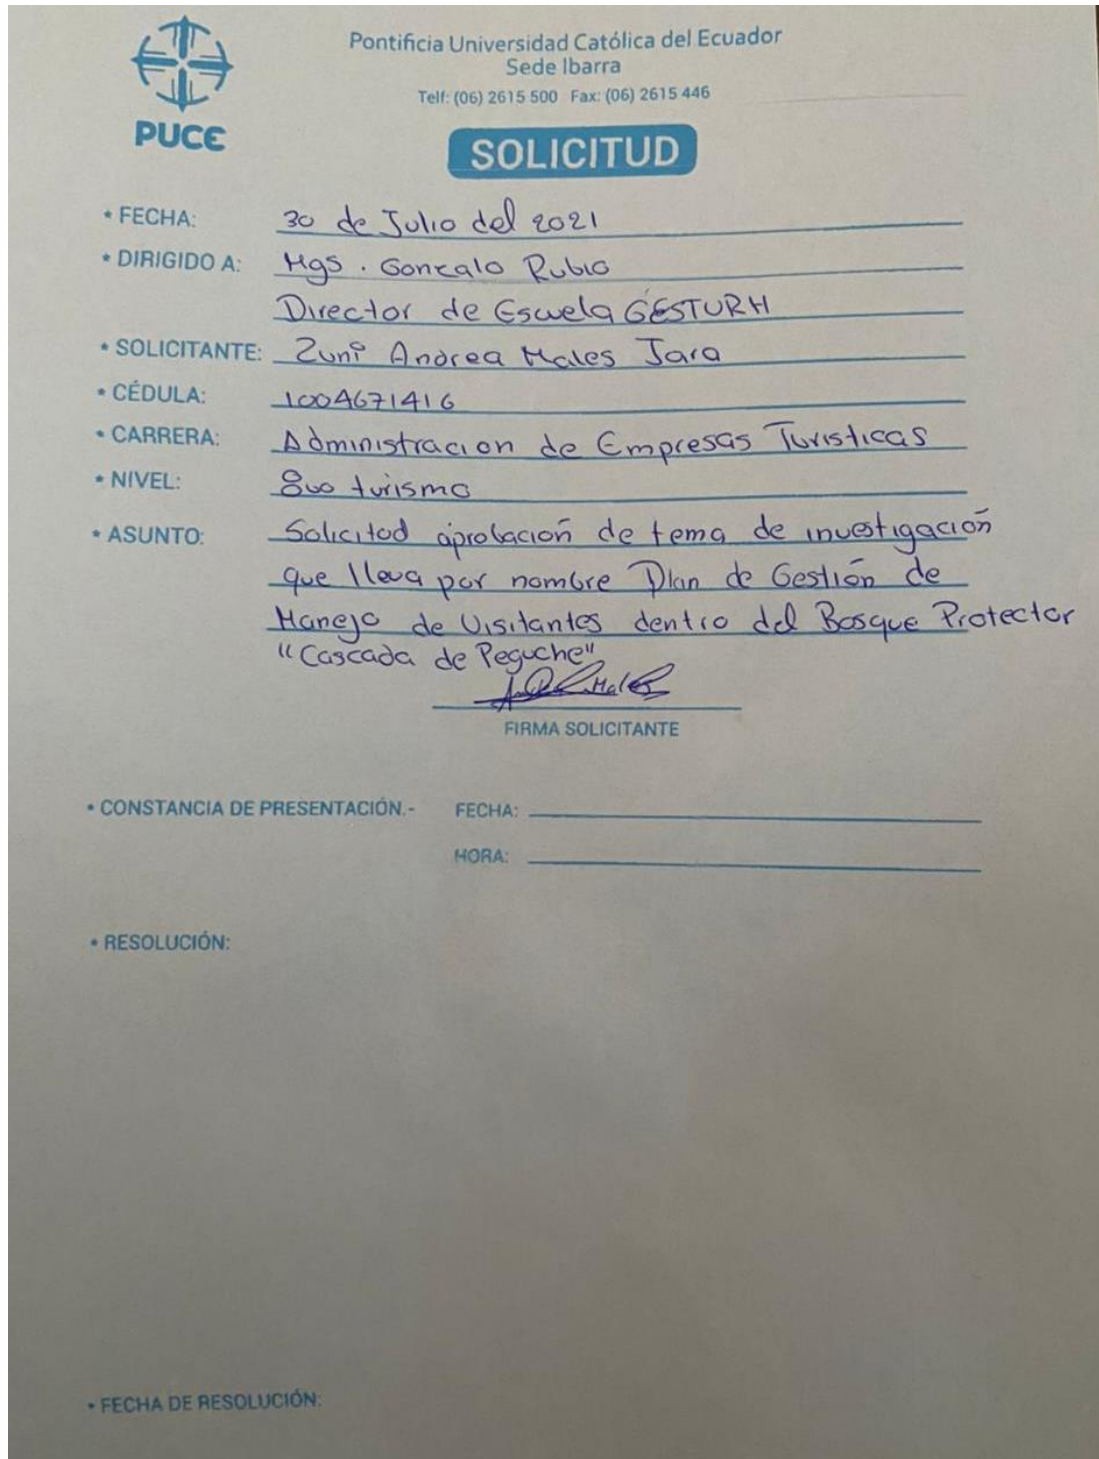 Pontificia Universidad Católica del Ecuador
Sede Ibarra
Telf: (06) 2615 500 Fax: (06) 2615 446
PUCE
SOLICITUD
* FECHA: 30 de Julio del 2021
* DIRIGIDO A: Mgs. Gonzalo Rubio
Director de Escuela GESTURH
* SOLICITANTE: Zuni Andrea Males Jara
* CÉDULA: 1004671416
* CARRERA: Administracion de Empresas Turisticas
* NIVEL: 8vo turismo
* ASUNTO: Solicitud aprobación de tema de investigación
que lleva por nombre Plan de Gestión de
Manejo de Visitantes dentro del Bosque Protector
"Cascada de Peguche"
Males
FIRMA SOLICITANTE
* CONSTANCIA DE PRESENTACIÓN.- FECHA:
HORA:
* RESOLUCIÓN:
* FECHA DE RESOLUCIÓN: